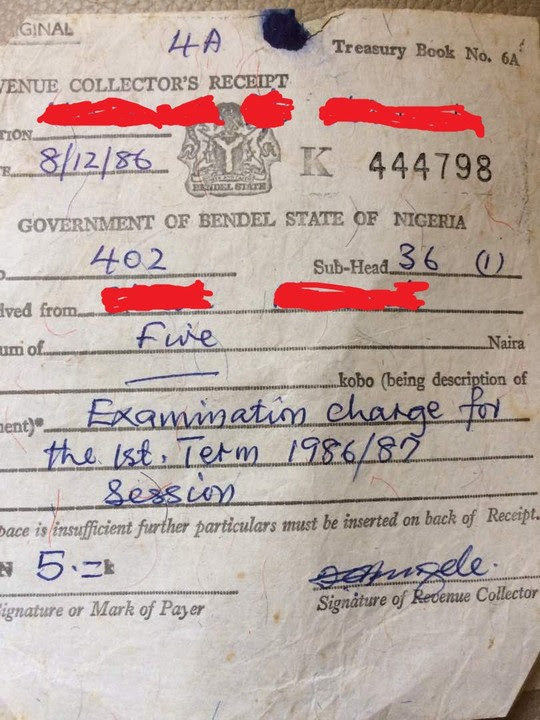 GINAL
4A
Treasury Book No. 6A
VENUE COLLECTOR'S RECEIPT
TION
E 8/12/86
BENDEL STATE
K 444798
GOVERNMENT OF BENDEL STATE OF NIGERIA
402 Sub-Head 36 (1)
ived from
um of Five Naira
kobo (being description of
ent)* Examination charge for
the 1st. Term 1986/87
Session
pace is insufficient further particulars must be inserted on back of Receipt.
N 5.=k
ignature or Mark of Payer
Signature of Revenue Collector